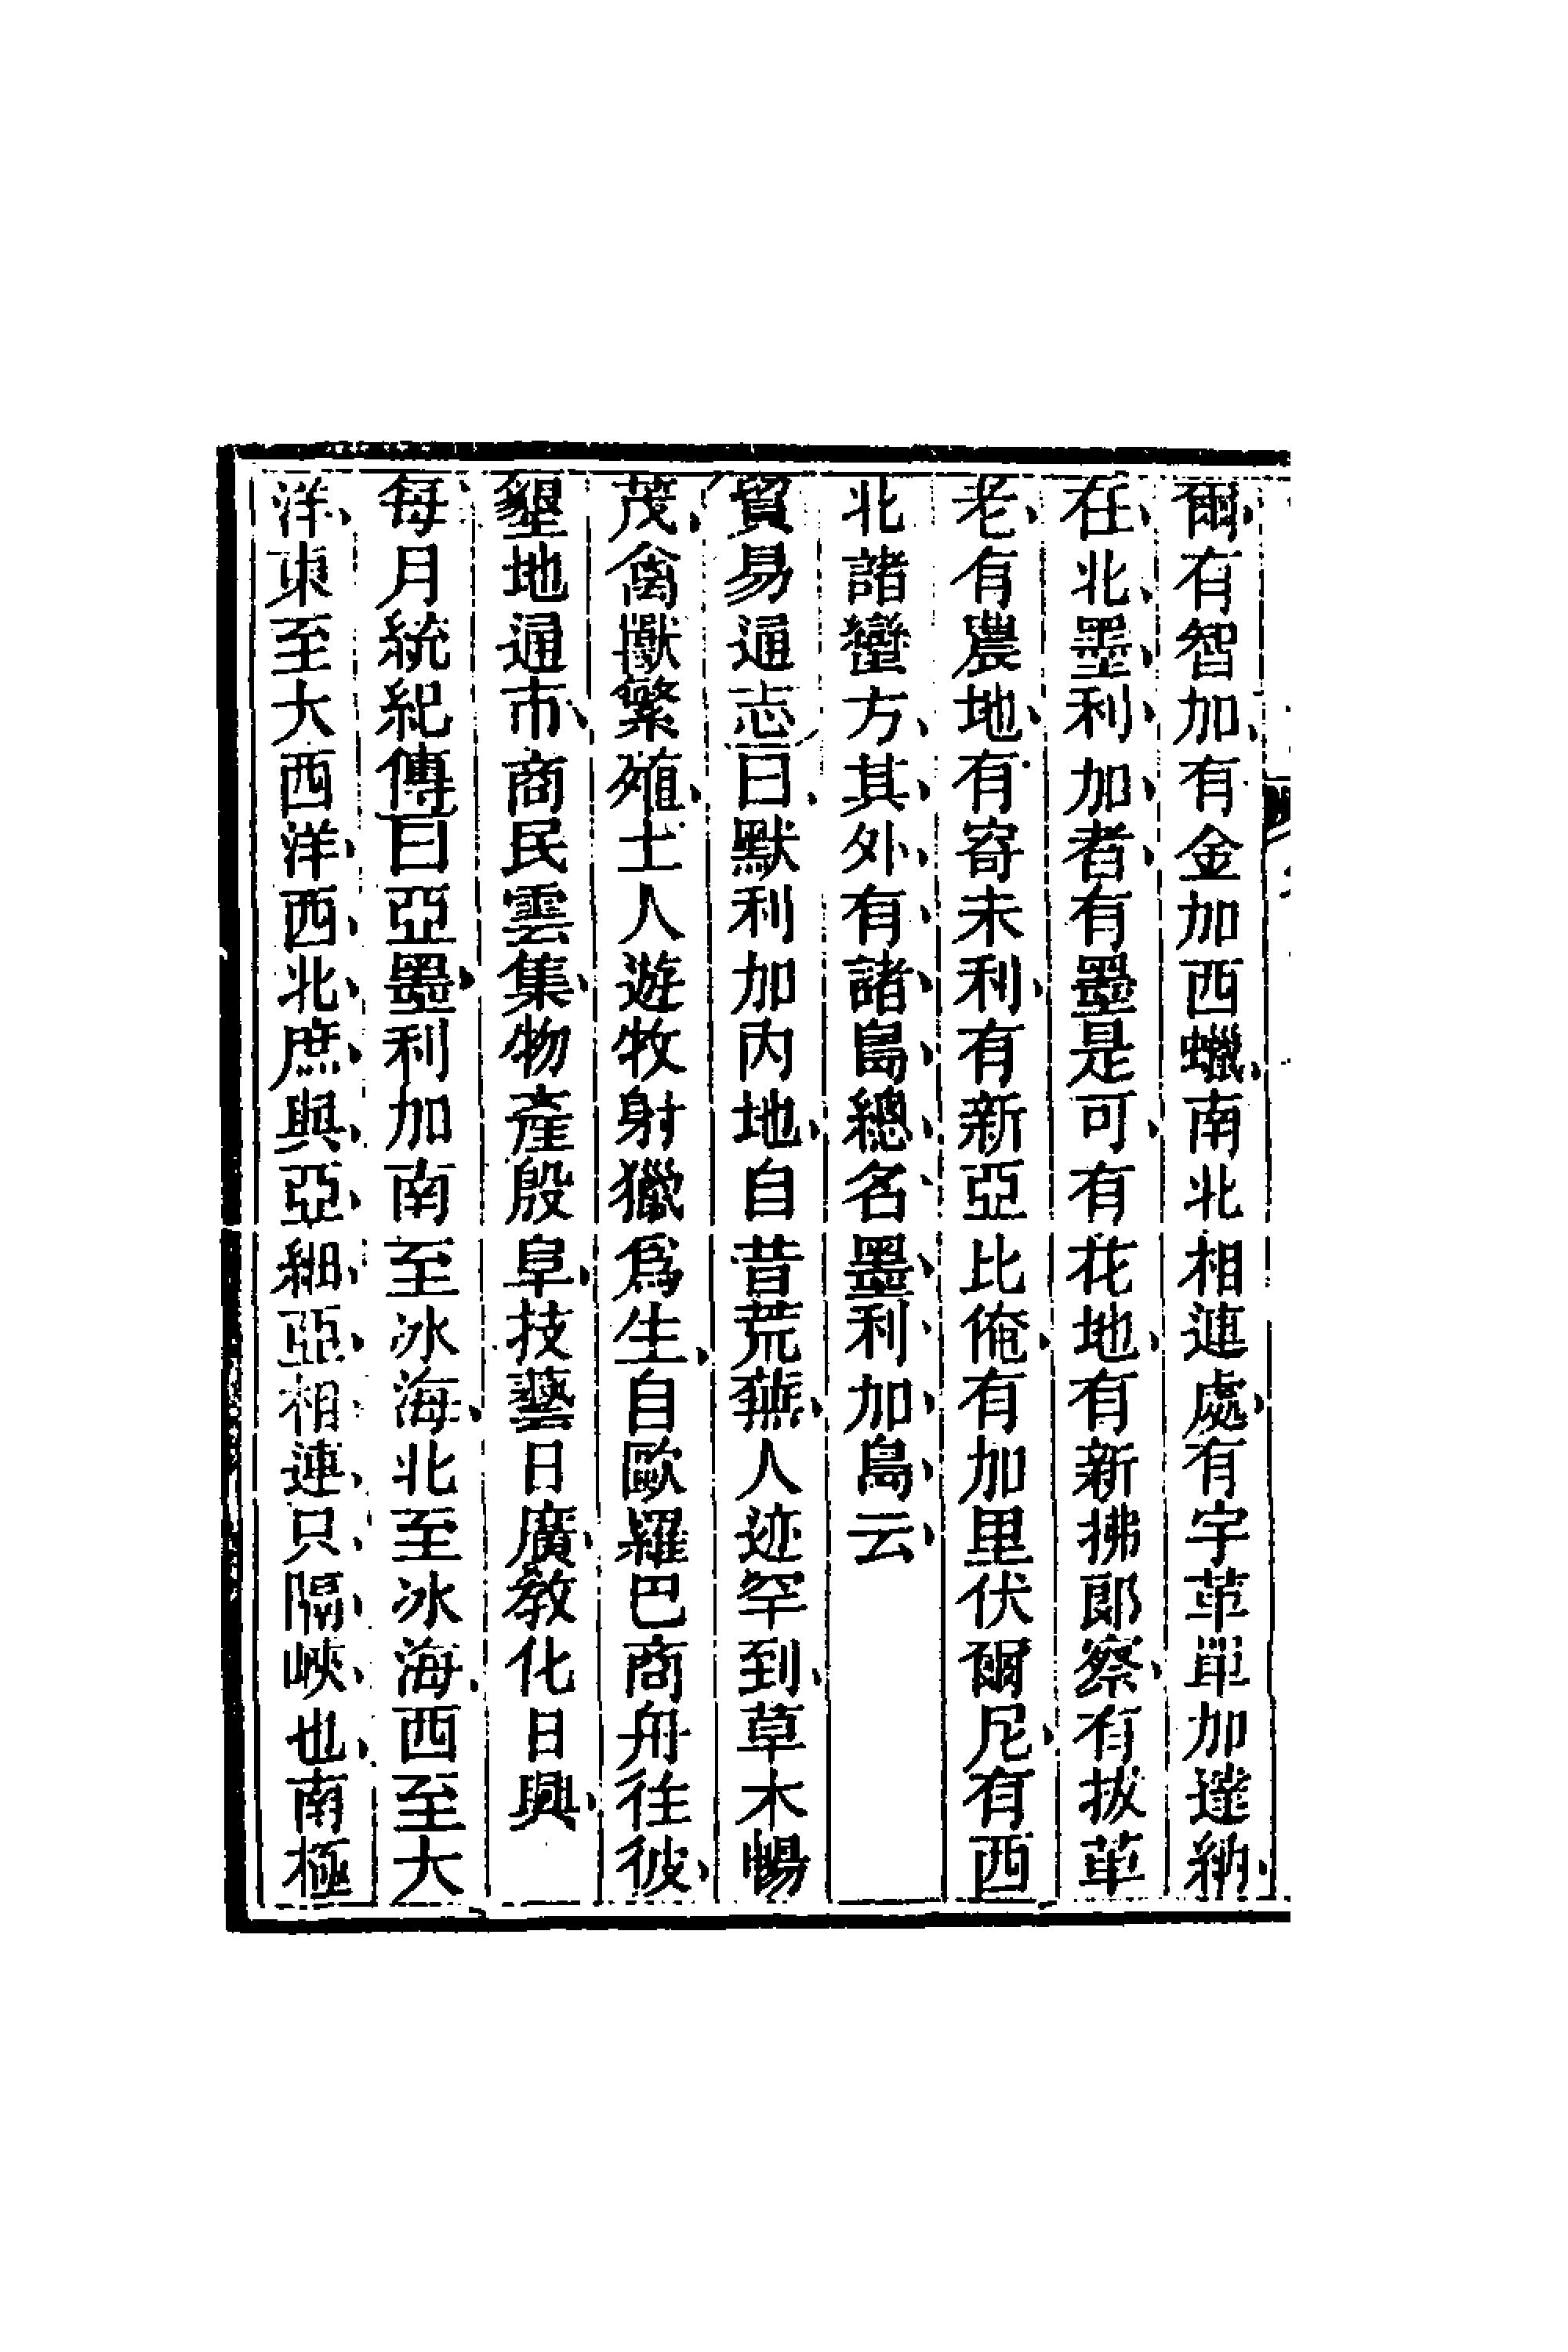 爾有智加有金加西蠟南北相連處有宇革單加達納
在北墨利加者有墨是可有花地有新拂郎察有拔革
老有農地有寄未利有新亞比俺有加里伏爾尼有西
北諸蠻方其外有諸島總名墨利加島云
貿易通志曰默利加內地自昔荒蕪人迹罕到草木暢
茂禽獸繁殖土人遊牧射獵爲生自歐羅巴商舟往彼
墾地通市商民雲集物產殷阜技藝日廣教化日興
每月統紀傳曰亞墨利加南至冰海北至冰海西至大
洋東至大西洋西北庶與亞細亞相連只隔峽也南極